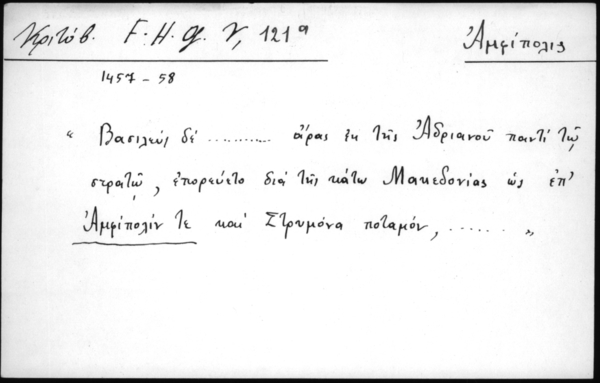 Κριτόβ. F. H. G. V, 121ª
Ἀμφίπολις
1457 - 58
" Βασιλεὺς δέ ........... ἄρας ἐκ τῆς Ἀδριανοῦ παντί τῷ
στρατῷ, ἐπορεύετο διά τῆς κάτω Μακεδονίας ὡς ἐπ'
Ἀμφίπολίν τε καί Στρυμόνα ποταμόν, ....... "